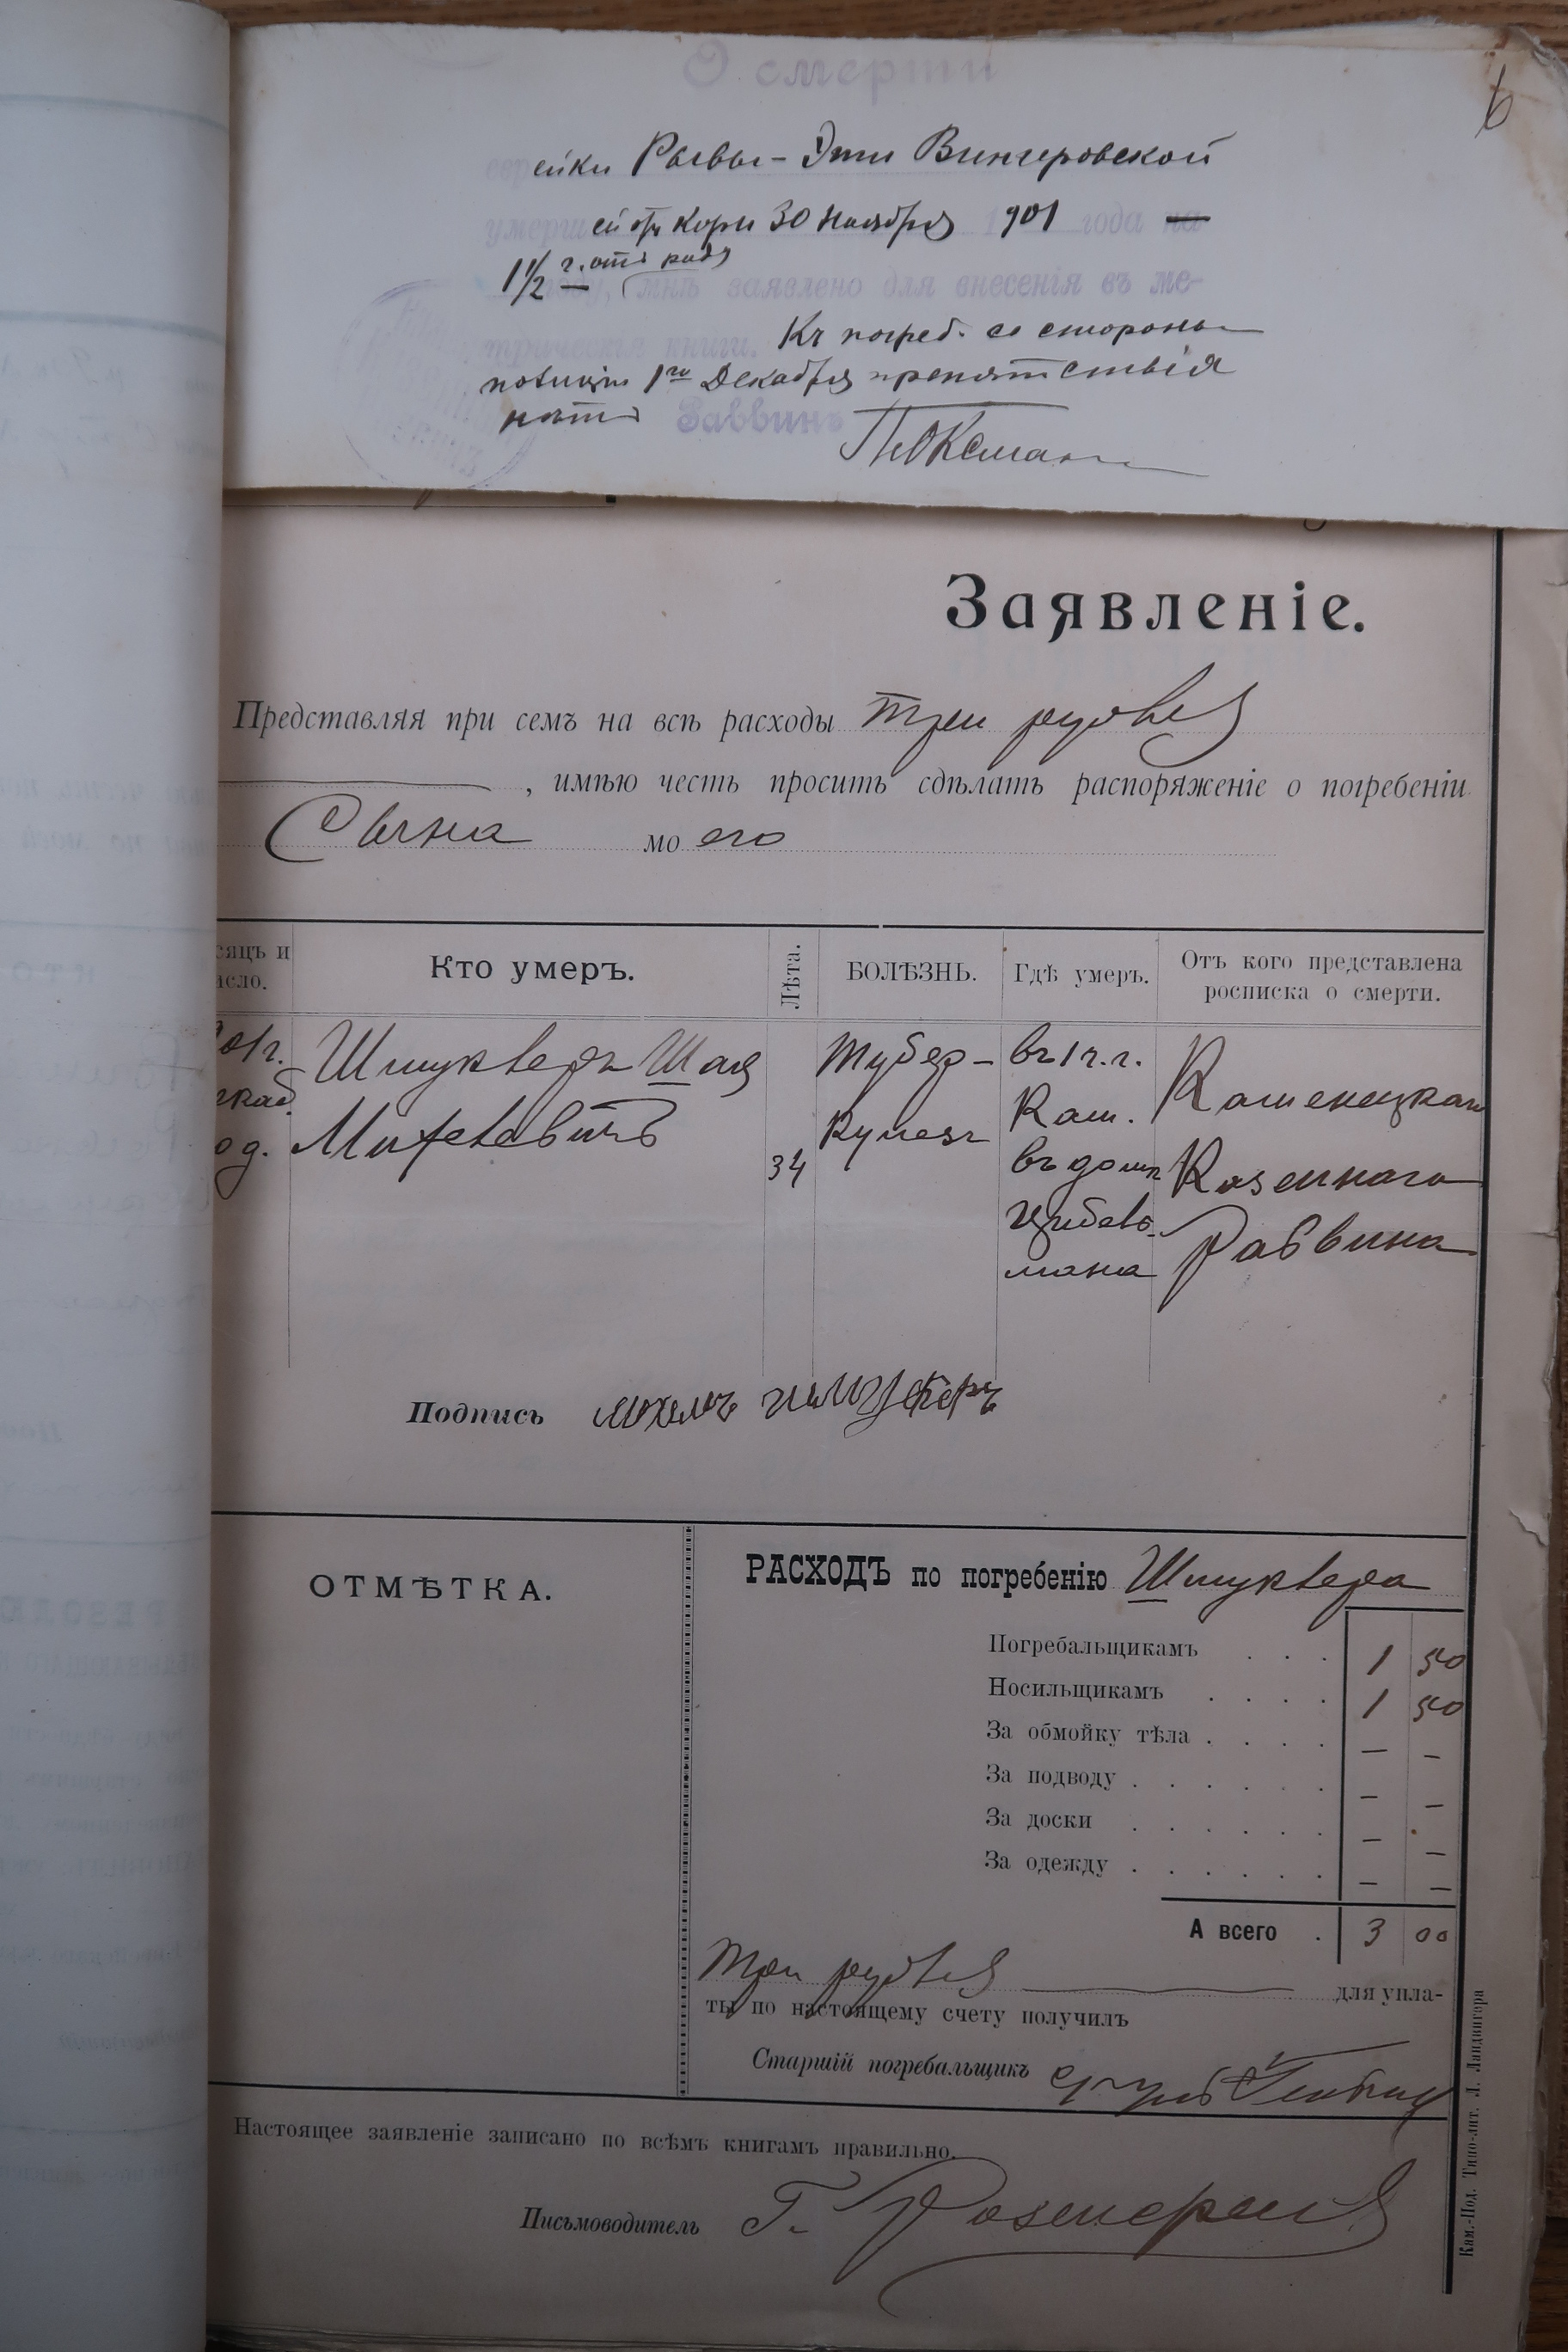 О смерти
6
еврейки Рывы-Эти Вингеровской
умершей отъ кори 30 Ноября 1901 года на
1 1/2 г. отъ роду, мнѣ заявлено для внесенія въ ме-
трическія книги. Къ погреб. со стороны
полиціи 1го Декабря препятствія
нѣтъ Раввинъ
Заявленіе.
Представляя при семъ на всѣ расходы три рубля
, имѣю честь просить сдѣлать распоряженіе о погребеніи
Сына моего
сяцъ и
исло.
Кто умеръ.
Лѣта.
БОЛѢЗНЬ.
Гдѣ умеръ.
Отъ кого представлена
росписка о смерти.
01г.
екаб.
д.
Шмуклеръ Шая
Михелевичъ
34
Тубер-
кулезъ
въ 1 ч. г.
Кам.
въ домѣ
Цибель-
мана
Каменецкаго
Казеннаго
Раввина
Подпись михель шмуклеръ
ОТМѢТКА.
РАСХОДЪ по погребенію Шмуклера
Погребальщикамъ . . . 1 50
Носильщикамъ . . . . 1 50
За обмойку тѣла . . . . — —
За подводу . . . . . . — —
За доски . . . . . . — —
За одежду . . . . . . — —
А всего . 3 00
Три рубля для упла-
ты по настоящему счету получилъ
Старшій погребальщикъ
Настоящее заявленіе записано по всѣмъ книгамъ правильно.
Письмоводитель Г.
Кам.-Под. Типо-лит. Л. Ландвигера